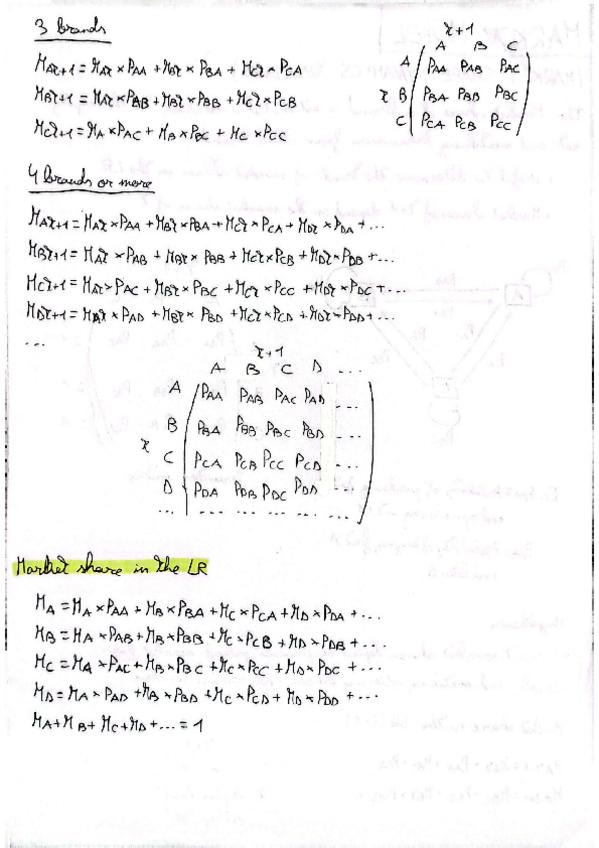 3 brands
M_At+1 = M_At × P_AA + M_Bt × P_BA + M_Ct × P_CA
M_Bt+1 = M_At × P_AB + M_Bt × P_BB + M_Ct × P_CB
M_Ct+1 = M_A × P_AC + M_B × P_BC + M_C × P_CC
t+1
A B C
A P_AA P_AB P_AC
t B P_BA P_BB P_BC
C P_CA P_CB P_CC
4 brands or more
M_At+1 = M_At × P_AA + M_Bt × P_BA + M_Ct × P_CA + M_Dt × P_DA + ...
M_Bt+1 = M_At × P_AB + M_Bt × P_BB + M_Ct × P_CB + M_Dt × P_DB + ...
M_Ct+1 = M_At × P_AC + M_Bt × P_BC + M_Ct × P_CC + M_Dt × P_DC + ...
M_Dt+1 = M_At × P_AD + M_Bt × P_BD + M_Ct × P_CD + M_Dt × P_DD + ...
...
t+1
A B C D ...
A P_AA P_AB P_AC P_AD ...
B P_BA P_BB P_BC P_BD ...
t
C P_CA P_CB P_CC P_CD ...
D P_DA P_DB P_DC P_DD ...
... ... ... ... ... ...
Market share in the LR
M_A = M_A × P_AA + M_B × P_BA + M_C × P_CA + M_D × P_DA + ...
M_B = M_A × P_AB + M_B × P_BB + M_C × P_CB + M_D × P_DB + ...
M_C = M_A × P_AC + M_B × P_BC + M_C × P_CC + M_D × P_DC + ...
M_D = M_A × P_AD + M_B × P_BD + M_C × P_CD + M_D × P_DD + ...
M_A + M_B + M_C + M_D + ... = 1